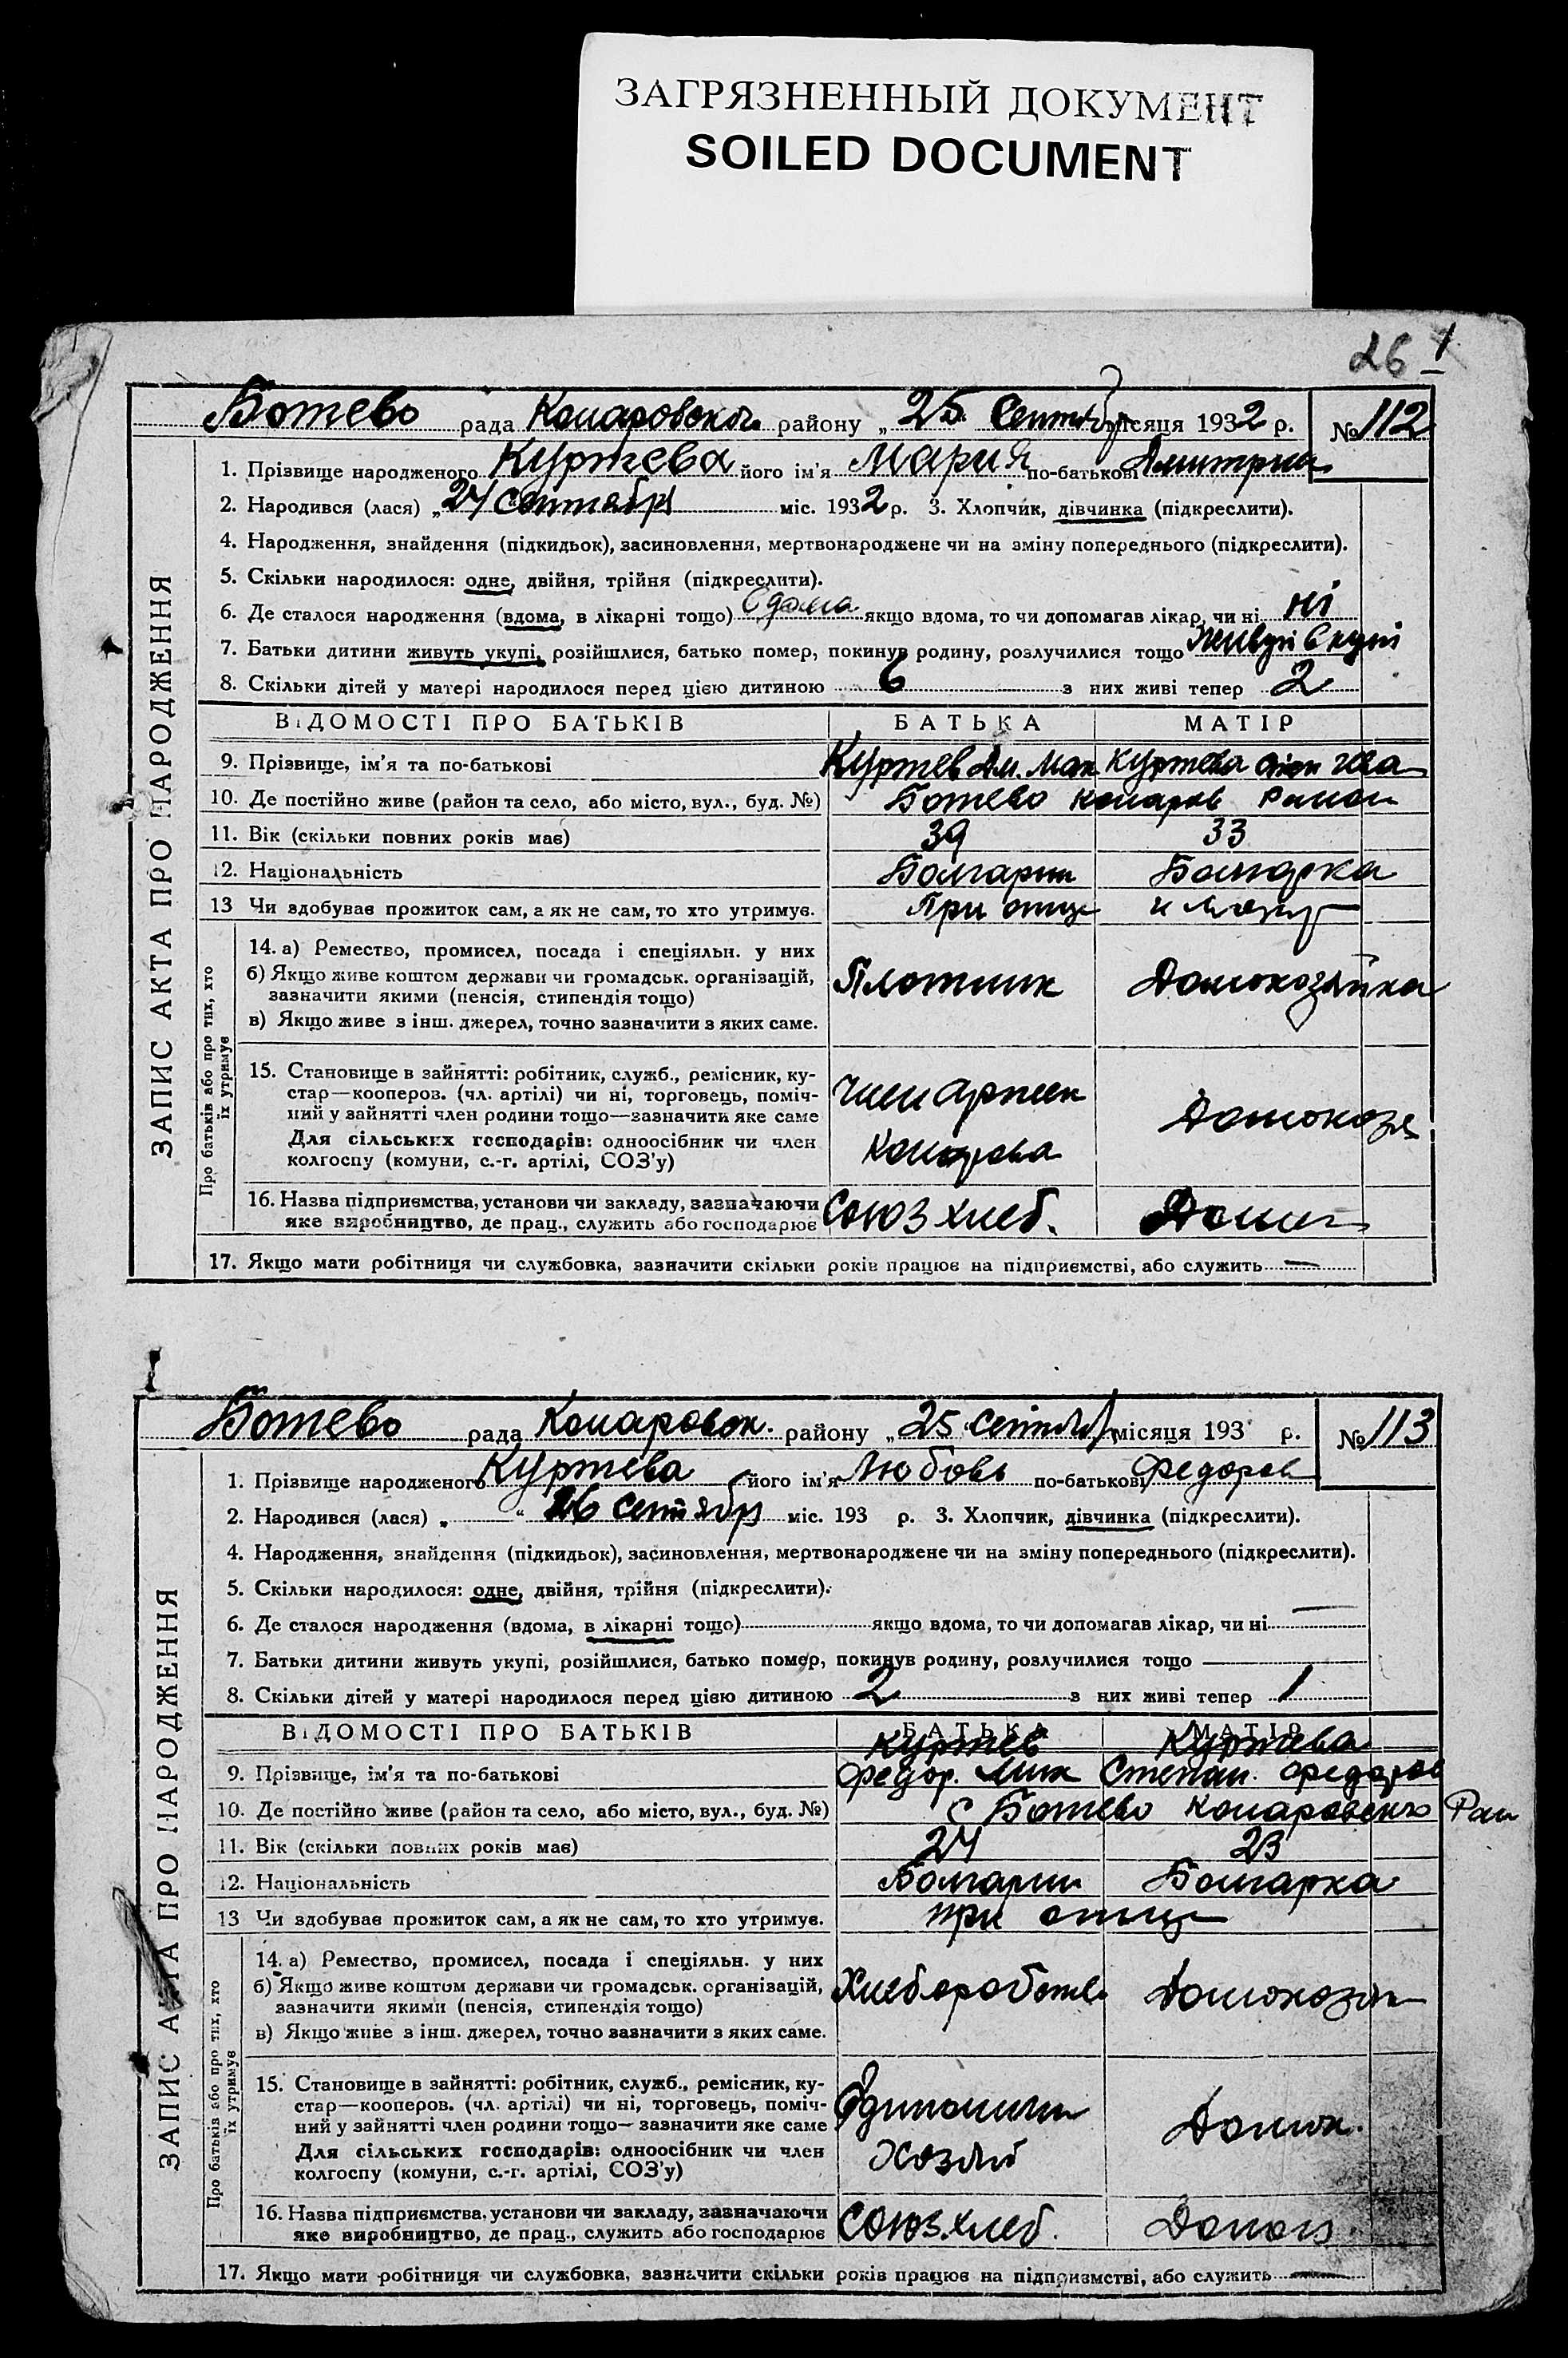 ЗАГРЯЗНЕННЫЙ ДОКУМЕНТ
SOILED DOCUMENT
26 1
Ботево рада Комаровског району „25 Сентяб місяця 1932 р. № 112
1. Прізвище народженого Куртева його ім'я Мария по-батькові Дмитриев
2. Народився (лася) „24 сентября міс. 1932 р. 3. Хлопчик, дівчинка (підкреслити).
4. Народження, знайдення (підкидьок), засиновлення, мертвонароджене чи на зміну попереднього (підкреслити).
5. Скільки народилося: одне, двійня, трійня (підкреслити).
6. Де сталося народження (вдома, в лікарні тощо) дома якщо вдома, то чи допомагав лікар, чи ні ні
7. Батьки дитини живуть укупі, розійшлися, батько помер, покинув родину, розлучилися тощо Живут вкупі
8. Скільки дітей у матері народилося перед цією дитиною 6 з них живі тепер 2
ВІДОМОСТІ ПРО БАТЬКІВ БАТЬКА МАТІР
9. Прізвище, ім'я та по-батькові Куртев Дм. Куртева
10. Де постійно живе (район та село, або місто, вул., буд. №) Ботево Комаров Район
11. Вік (скільки повних років має) 39 33
12. Національність Болгарин Болгарка
13 Чи здобуває прожиток сам, а як не сам, то хто утримує. При отце и
14. а) Ремество, промисел, посада і спеціяльн. у них
б) Якщо живе коштом держави чи громадськ. організацій,
зазначити якими (пенсія, стипендія тощо)
в) Якщо живе з інш. джерел, точно зазначити з яких саме.
Плотник Домохозяйка
15. Становище в зайнятті: робітник, служб., ремісник, ку-
стар—коопероз. (чл. артілі) чи ні, торговець, поміч-
ний у зайнятті член родини тощо—зазначити яке саме
Для сільських господарів: одноосібник чи член
колгоспу (комуни, с.-г. артілі, СОЗ'у)
Член артели Домохозя
16. Назва підприємства, установи чи закладу, зазначаючи
яке виробництво, де прац., служить або господарює
Союзхлеб.
17. Якщо мати робітниця чи службовка, зазначити скільки років працює на підприємстві, або служить —
ЗАПИС АКТА ПРО НАРОДЖЕННЯ
Про батьків або про тих, хто
їх утримує
Ботево рада Комаровск. району „25 сентяб місяця 193 р. № 113
1. Прізвище народженого Куртева його ім'я Любовь по-батькові Федоров
2. Народився (лася) „ “ 26 сентября міс. 193 р. 3. Хлопчик, дівчинка (підкреслити).
4. Народження, знайдення (підкидьок), засиновлення, мертвонароджене чи на зміну попереднього (підкреслити).
5. Скільки народилося: одне, двійня, трійня (підкреслити).
6. Де сталося народження (вдома, в лікарні тощо) якщо вдома, то чи допомагав лікар, чи ні —
7. Батьки дитини живуть укупі, розійшлися, батько помер, покинув родину, розлучилися тощо
8. Скільки дітей у матері народилося перед цією дитиною 2 з них живі тепер 1
ВІДОМОСТІ ПРО БАТЬКІВ БАТЬКА МАТІР
Куртев Куртева
9. Прізвище, ім'я та по-батькові Федор. Мих Степан. Федоров
10. Де постійно живе (район та село, або місто, вул., буд. №) с Ботево Комаровского Рай
11. Вік (скільки повних років має) 24 23
12. Національність Болгарин Болгарка
13 Чи здобуває прожиток сам, а як не сам, то хто утримує. при отце
14. а) Ремество, промисел, посада і спеціяльн. у них
б) Якщо живе коштом держави чи громадськ. організацій,
зазначити якими (пенсія, стипендія тощо)
в) Якщо живе з інш. джерел, точно зазначити з яких саме.
Домохозяй
15. Становище в зайнятті: робітник, служб., ремісник, ку-
стар—кооперов. (чл. артілі) чи ні, торговець, поміч-
ний у зайнятті член родини тощо—зазначити яке саме
Для сільських господарів: одноосібник чи член
колгоспу (комуни, с.-г. артілі, СОЗ'у)
Домох.
16. Назва підприємства, установи чи закладу, зазначаючи
яке виробництво, де прац., служить або господарює
Союз.хлеб.
17. Якщо мати робітниця чи службовка, зазначити скільки років працює на підприємстві, або служить —
ЗАПИС АКТА ПРО НАРОДЖЕННЯ
Про батьків або про тих, хто
їх утримує